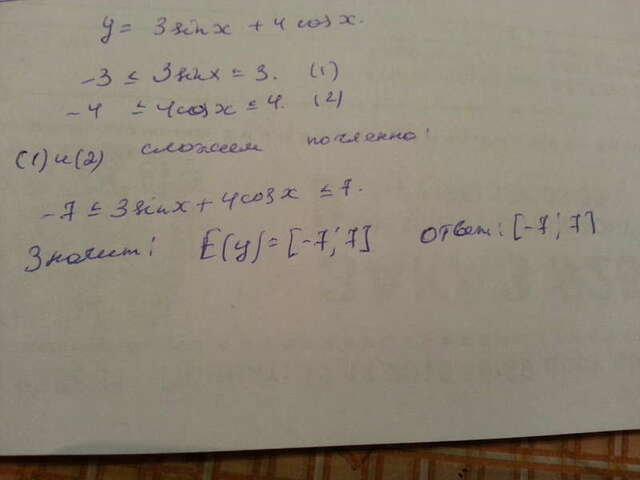 y = 3 sin x + 4 cos x.
-3 ≤ 3 sin x ≤ 3. (1)
-4 ≤ 4 cos x ≤ 4. (2)
(1) и (2) сложем почленно:
-7 ≤ 3 sin x + 4 cos x ≤ 7.
Значит: E(y) = [-7; 7] ответ: [-7; 7]